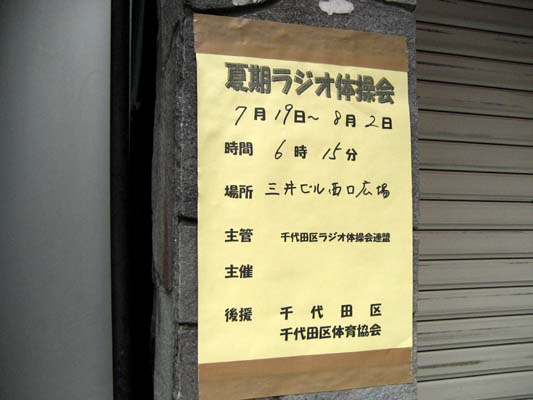 夏期ラジオ体操会
7月19日～8月2日
時間 6時15分
場所 三井ビル西口広場
主管 千代田区ラジオ体操会連盟
主催
後援 千代田区
千代田区体育協会